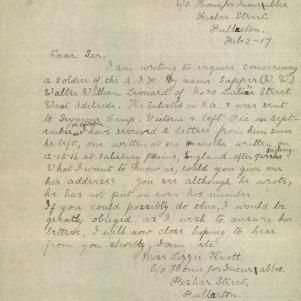 C/o Home for Incurables.
Fisher Street,
Fullarton.
Feb 2-17.
Dear Sir,
I am writing to enquire concerning
a soldier of the A.I.F. by name Sapper (W. W.)
Walter William of No 30 Street
West Adelaide. He enlisted in S.A. & was sent
to Seymour Camp, Victoria & left Vic in Sept-
ember have received 2 letters from him since
he left, one written at sea & another written on
12-12-16 at Salisbury Plains, England. after 9 weeks sailing.
What I want to know is, could you give me
his address? You see although he wrote,
he has not put in here his number.
If you could possibly do this, I would be
greatly obliged as I wish to answer his
letters, I will now close hoping to hear
from you shortly, I am etc
Miss Lizzie Knott.
C/o Home for Incurables.
Fisher Street,
Fullarton.